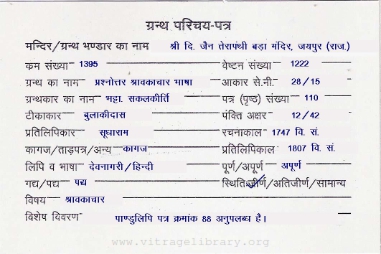 ग्रन्थ परिचय-पत्र
मन्दिर/ग्रन्थ भण्डार का नाम श्री दि. जैन तेरापंथी बड़ा मंदिर, जयपुर (राज.)
क्रम संख्या 1395 वेष्टन संख्या 1222
ग्रन्थ का नाम प्रश्नोत्तर श्रावकाचार भाषा आकार से.मी. 28/15
ग्रन्थकार का नाम भट्टा. सकलकीर्ति पत्र (पृष्ठ) संख्या 110
टीकाकार बुलाकीदास पंक्ति अक्षर 12/42
प्रतिलिपिकार सूधाराम रचनाकाल 1747 वि. सं.
कागज/ताड़पत्र/अन्य कागज प्रतिलिपिकाल 1807 वि. सं.
लिपि व भाषा देवनागरी/हिन्दी पूर्ण/अपूर्ण अपूर्ण
गद्य/पद्य पद्य स्थिति जीर्ण/अतिजीर्ण/सामान्य
विषय श्रावकाचार
विशेष विवरण पाण्डुलिपि पत्र क्रमांक 88 अनुपलब्ध है।
www.vitragelibrary.org